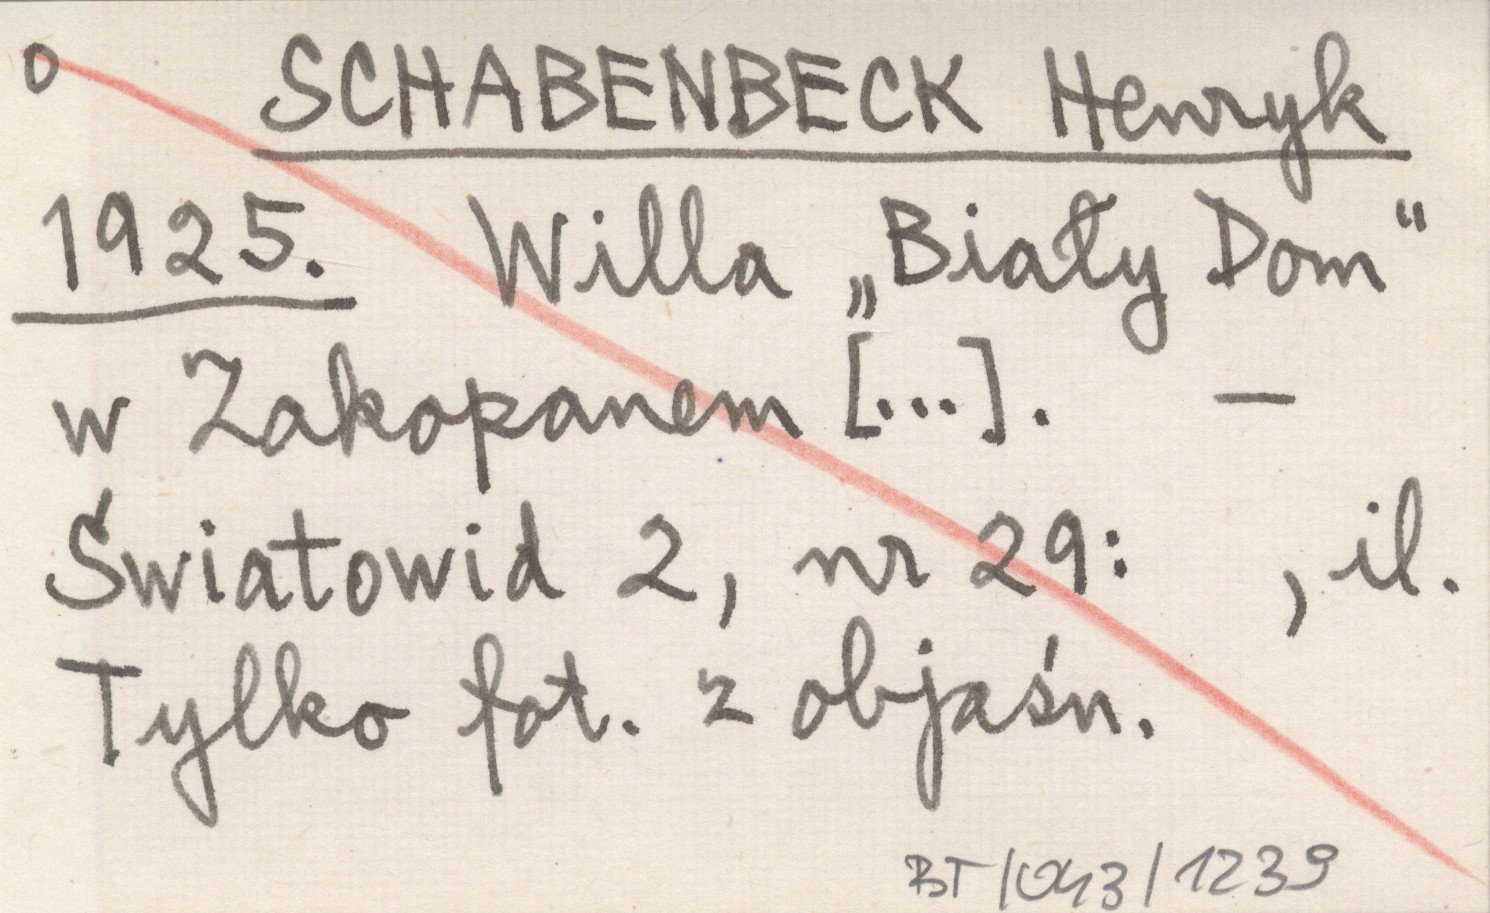 o SCHABENBECK Henryk
1925. Willa „Biały Dom“
w Zakopanem [...]. —
Światowid 2, nr 29: , il.
Tylko fot. z objaśn.
BT/043/1239